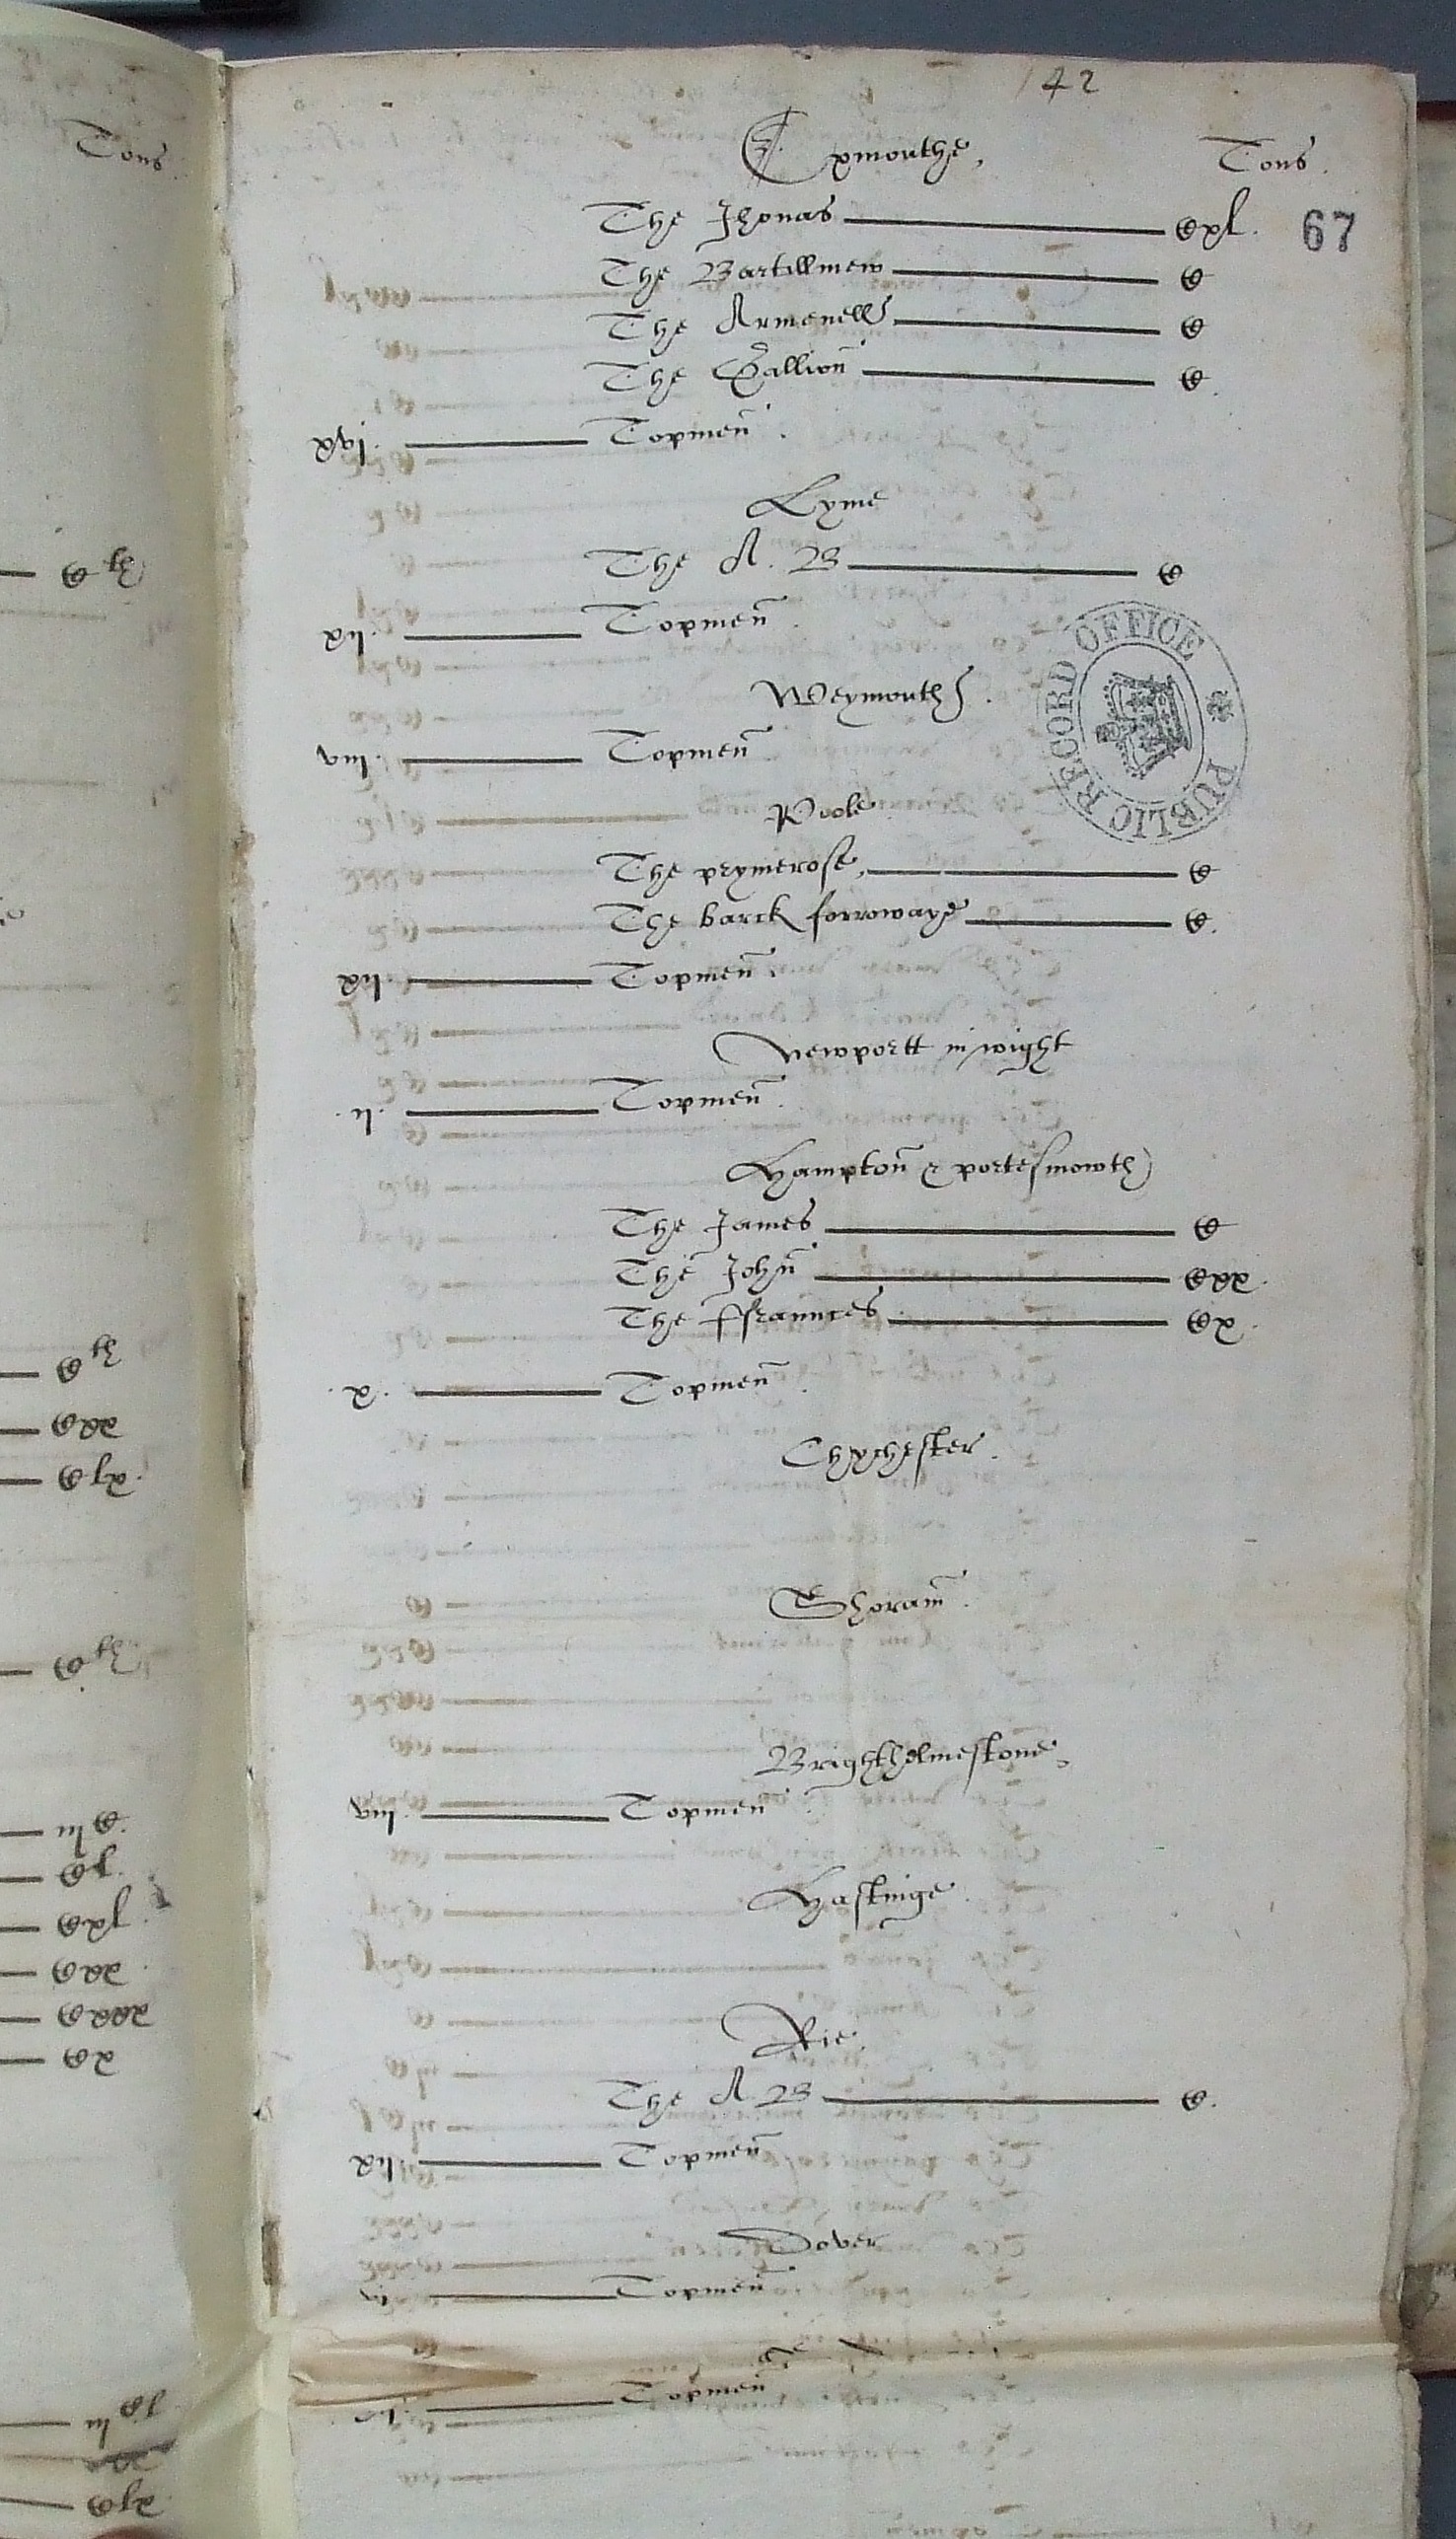 Tons
142
Exmouthe, Tons.
The Jhonas cxl. 67
The Bartillmew c
The Armenell c
The Gallion c.
xvj. Topmen.
Lyme
The A. B c
xij. Topmen.
Weymouth.
viij. Topmen
Poole.
The prymerose, c
The barck sorrowaye c.
xij. Topmen.
Newportt in wight
.ij. Topmen.
Hampton & portesmowth
The James c
The John cxx.
The ffraunces. cx.
.x. Topmen.
Chychester.
Shoram.
Brighthelmestone,
viij. Topmen.
Hastinge.
Rie.
The A. B c.
xij. Topmen
Dover
vj Topmen
Topmen
PUBLIC RECORD OFFICE